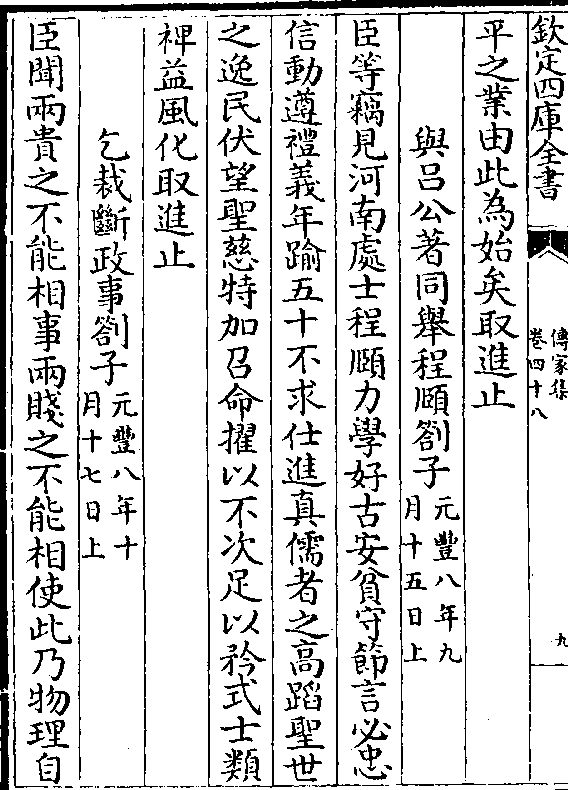 欽定四庫全書
傳家集
卷四十八
九
平之業由此為始矣取進止
與呂公著同舉程頤劄子元豐八年九
月十五日上
臣等竊見河南處士程頤力學好古安貧守節言必忠
信動遵禮義年踰五十不求仕進真儒者之高蹈聖世
之逸民伏望聖慈特加召命擢以不次足以矜式士類
裨益風化取進止
乞裁斷政事劄子元豐八年十
月十七日上
臣聞兩貴之不能相事兩賤之不能相使此乃物理自